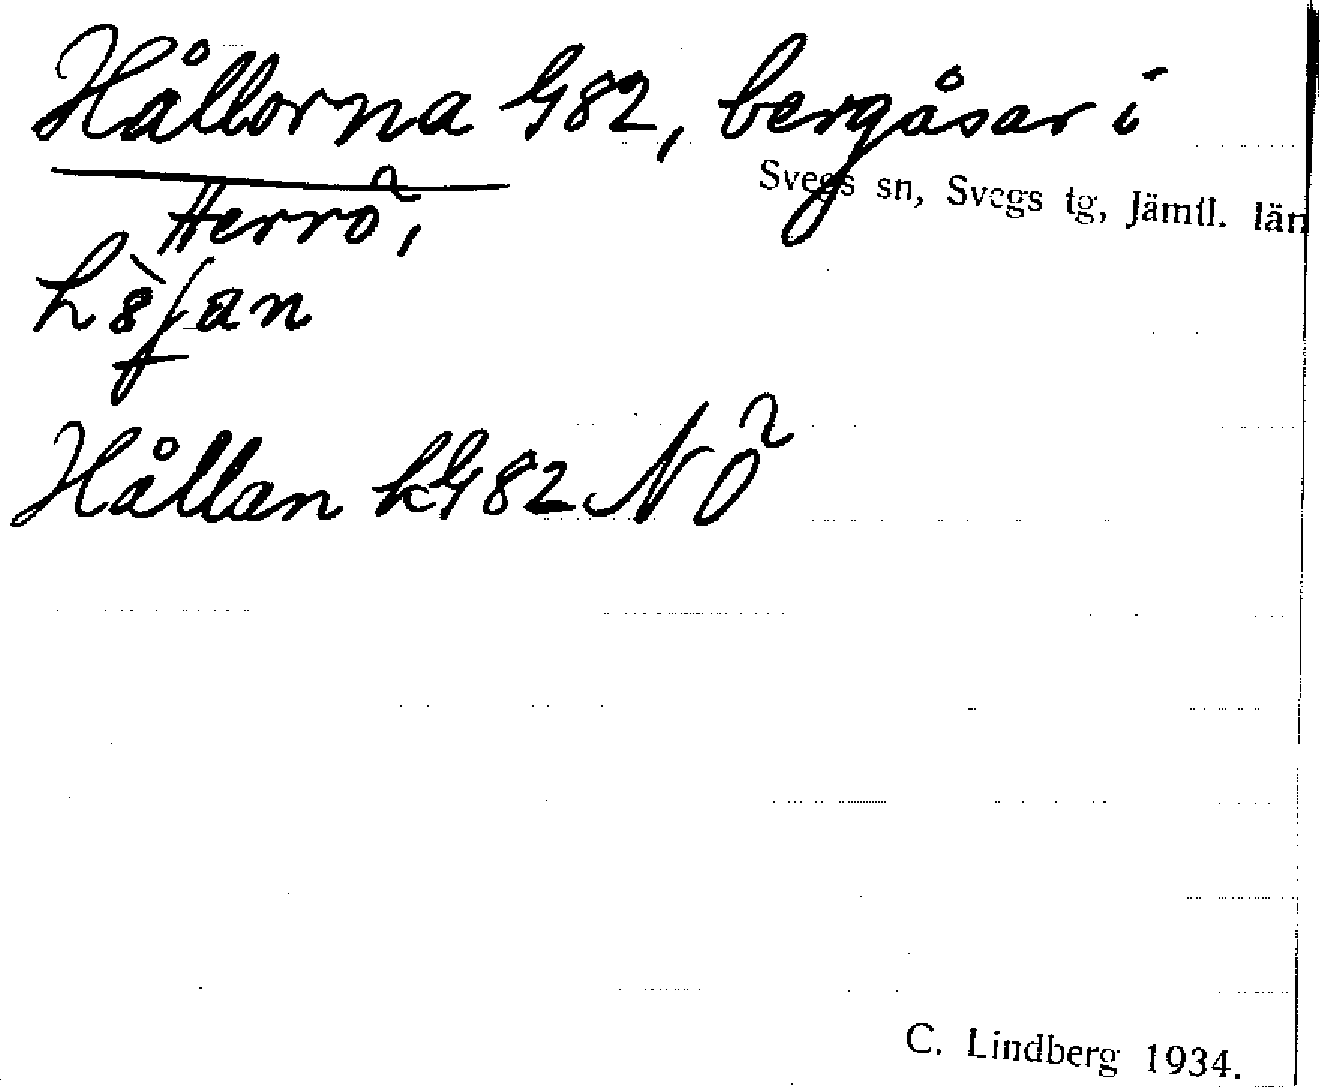 Hållorna G82, bergåsar i
Svegs sn, Svegs tg, Jämtl. län
Herrö,
Hållan kG82 NÖ
C. Lindberg 1934.